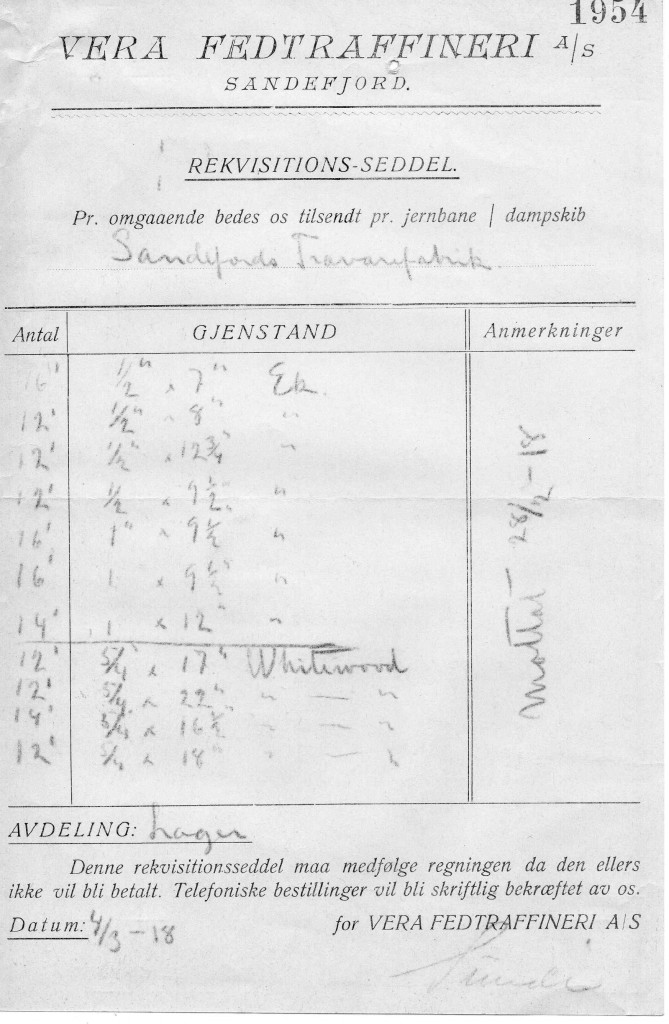 1954
VERA FEDTRAFFINERI A/S
SANDEFJORD.
REKVISITIONS-SEDDEL.
Pr. omgaaende bedes os tilsendt pr. jernbane / dampskib
Sandefjords Travarefabrik.
Antal GJENSTAND Anmerkninger
16" 1/2" x 7" Ek.
12' 1/2" x 8" "
12' 1/2" x 12 3/4" "
12' 1/2 x 9 1/2" "
16' 1" x 9 1/2 "
16' 1 x 9 1/2" "
14' 1 x 12" "
12' 5/4" x 17" Whitewood
12' 5/4 x 22" " — "
14' 5/4 x 16 1/2 " — "
12' 5/4 x 18" " — "
Mottat 28/2 - 18
AVDELING: Lager
Denne rekvisitionsseddel maa medfølge regningen da den ellers
ikke vil bli betalt. Telefoniske bestillinger vil bli skriftlig bekræftet av os.
Datum: 4/3 - 18 for VERA FEDTRAFFINERI A/S